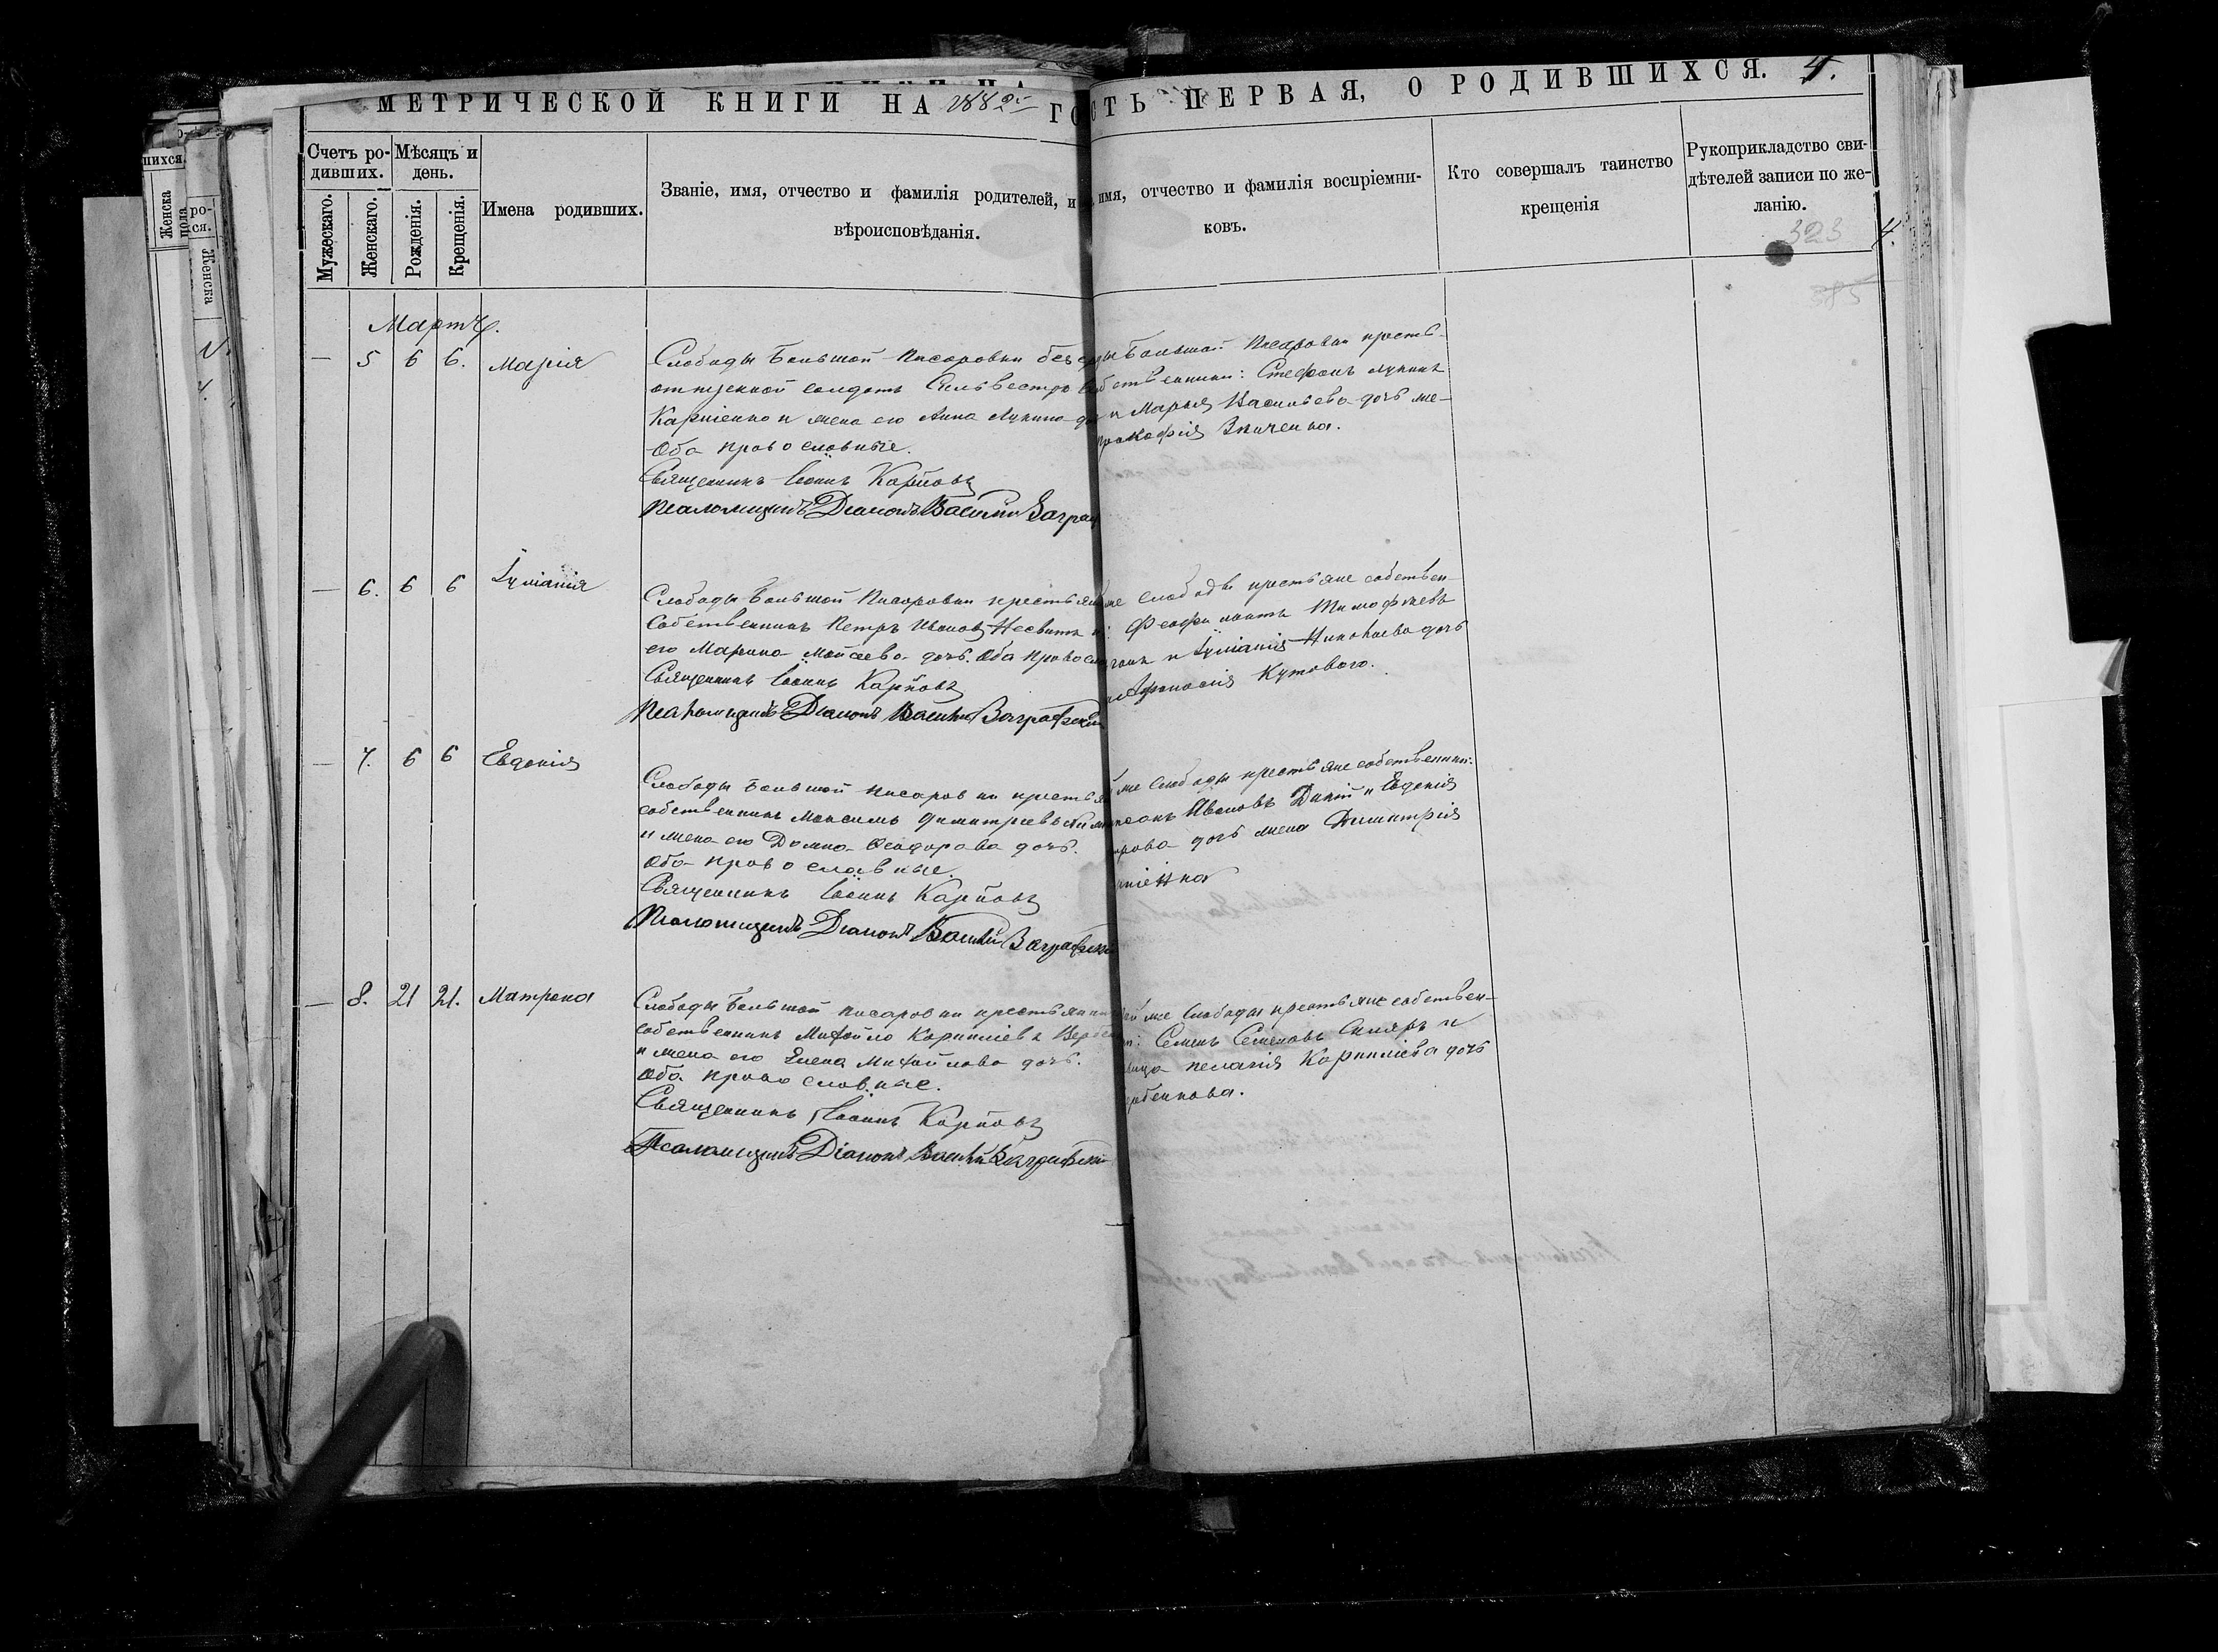 МЕТРИЧЕСКОЙ КНИГИ НА 1882й ГО
СТЬ ПЕРВАЯ, О РОДИВШИХСЯ. 4.
Счетъ ро-
дивших.
Мужескаго.
Женскаго.
Мѣсяцъ и
день.
Рожденія.
Крещенія.
Имена родивших.
Званіе, имя, отчество и фамилія родителей, и
вѣроисповѣданія.
имя, отчество и фамилія воспріемни-
ковъ.
Кто совершалъ таинство
крещенія
Рукоприкладство сви-
дѣтелей записи по же-
ланію.
323
4.
385
Мартъ.
— 5 6 6. Марія
Слободы Большой Писаровки без
отпускной солдатъ Сильвестръ
Карпіенко и жена его Анна Лукина
Оба православные.
Священникъ Іоаннъ Карповъ
Псаломщикъ Діаконъ Василій Заграф
Большой Писаровки кресть-
ственники: Стефанъ Лукинъ
и Марья Васильева дочь же-
Прокофія Зинченка.
— 6. 6 6 Іуліанія
Слободы Большой Писаровки крестьян
собственникъ Петръ Ивановъ Несвитъ
его Марина Мойсеева дочь. Оба правосл
Священникъ Іоаннъ Карповъ
Псаломщикъ Діаконъ Василій Заграфскій
же слободы крестьяне собствен-
Феофилактъ Тимофѣевъ
и Іуліанія Николаева дочь
Афанасія Кутового.
— 7. 6 6 Евдокія
Слободы Большой Писаровки крестьян
собственникъ Максимъ Димитріевъ
и жена его Домна Феодорова дочь.
Оба православные.
Священникъ Іоаннъ Карповъ
Псаломщикъ Діаконъ Василій Заграфскій
же слободы крестьяне собственники:
Ивановъ Дикій и Евдокія
рова дочь жена Димитрія
ніенка
— 8. 21 21. Матрона
Слободы Большой Писаровки крестьянинъ
собственникъ Михайло Корниліевъ Верб
и жена его Елена Михайлова дочь.
Оба православные.
Священникъ Іоаннъ Карповъ
Псаломщикъ Діаконъ Василій Заграфскій
же слободы крестьяне собствен-
Семенъ Семеновъ Скляръ и
вица Пелагія Корниліева дочь
рбенкова.